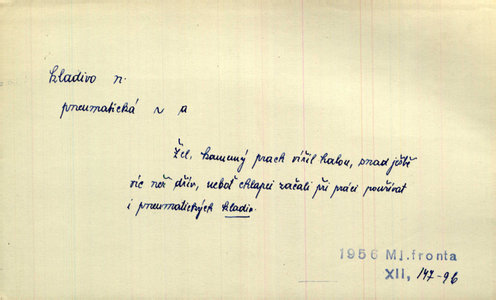 kladivo n.
pneumatická ~ a
Žel, kamenný prach vířil halou, snad ještě
víc než dřív, neboť chlapci začali při práci používat
i pneumatických kladiv.
1956 Ml.fronta
XII, 147-96